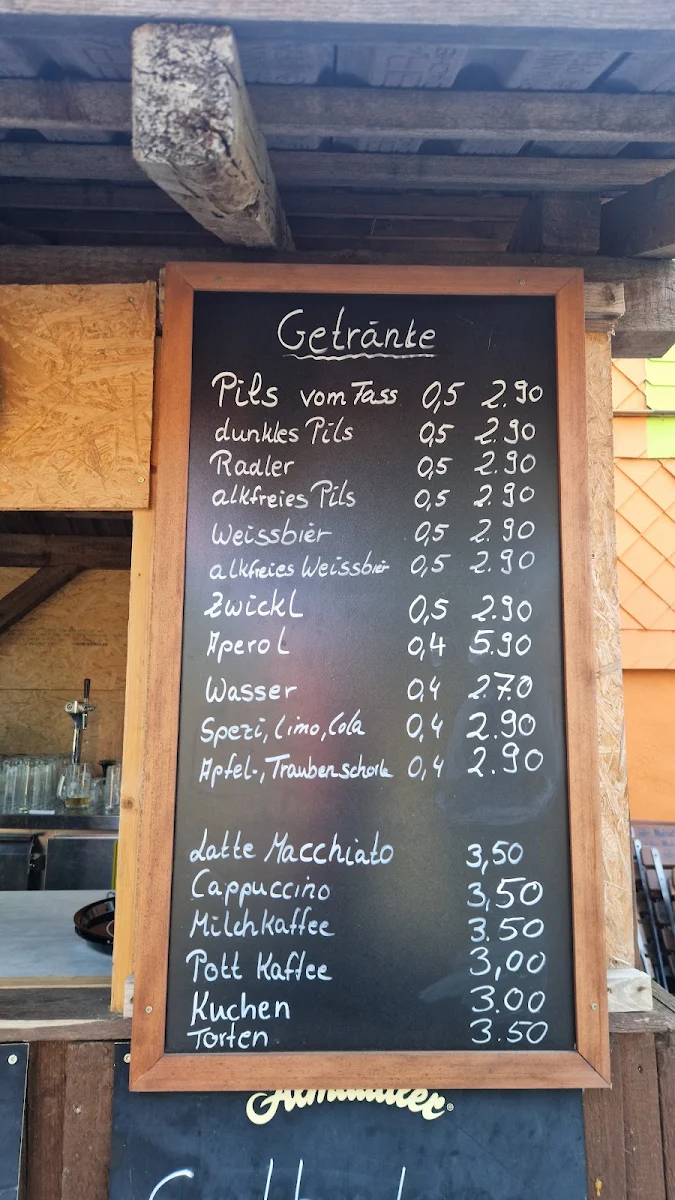 Getränke
Pils vom Fass 0,5 2.90
dunkles Pils 0,5 2.90
Radler 0,5 2.90
alkfreies Pils 0,5 2.90
Weissbier 0,5 2.90
alkfreies Weissbier 0,5 2.90
Zwickl 0,5 2.90
Aperol 0,4 5.90
Wasser 0,4 2.70
Spezi, Limo, Cola 0,4 2.90
Apfel-, Traubenschorle 0,4 2.90
Latte Macchiato 3,50
Cappuccino 3,50
Milchkaffee 3.50
Pott Kaffee 3,00
Kuchen 3.00
Torten 3.50
Almdudler®